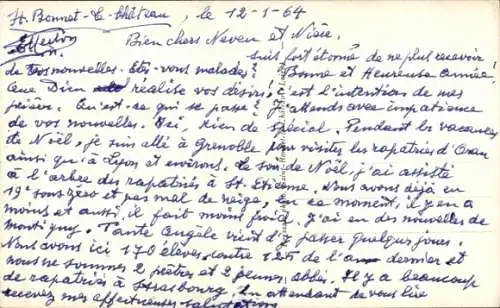 St. Bonnet-le-Château, le 12-1-64
Affection
Allon.
Bien chers Neveu et Nièce.
suis fort étonné de ne plus recevoir
de vos nouvelles. Etes-vous malades? Bonne et Heureuse année!
Que Dieu réalise vos désirs, c'est l'intention de mes
prières. Qu'est-ce qui se passe? J'attends avec impatience
de vos nouvelles. Ici, rien de spécial. Pendant les vacances
de Noël, je suis allé à Grenoble pour visiter les rapatriés d'Oran
ainsi qu'à Lyon et environs. Le soir de Noël j'ai assisté
à l'arbre des rapatriés à St. Etienne. Nous avons déjà eu
19° sous zéro et pas mal de neige, en ce moment, il y en a
moins et aussi il fait moins froid. J'ai eu des nouvelles de
Montigny. Tante Angèle vient d'y passer quelques jours.
Nous avons ici 170 élèves, contre 125 de l'an dernier et
nous se sommes 2 prêtres et 2 jeunes abbés. Il y a beaucoup
de rapatriés à Strasbourg. En attendant de vous lire
recevez mes affectueuses salutations